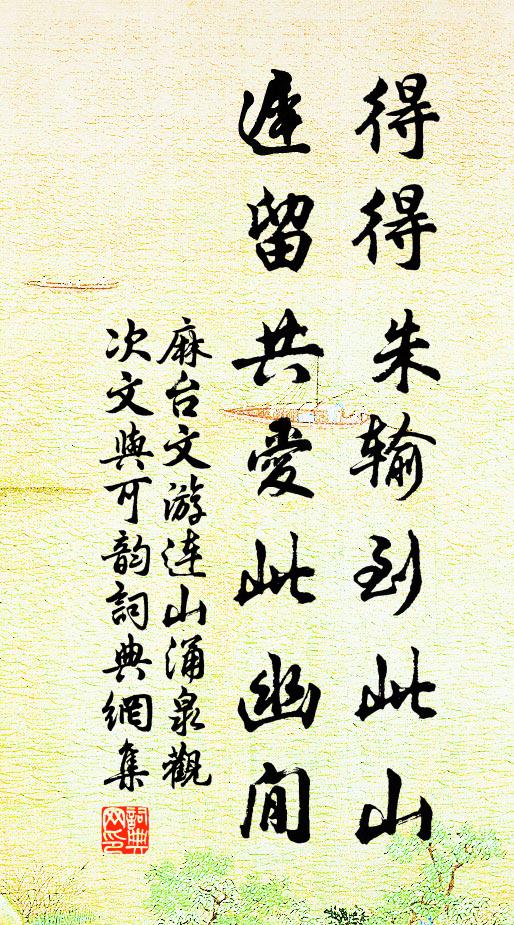 得得朱輪到此山
遲留共愛此幽閒
麻台文游连山涌泉觀
次文與可韵詞典網集
詞典网印